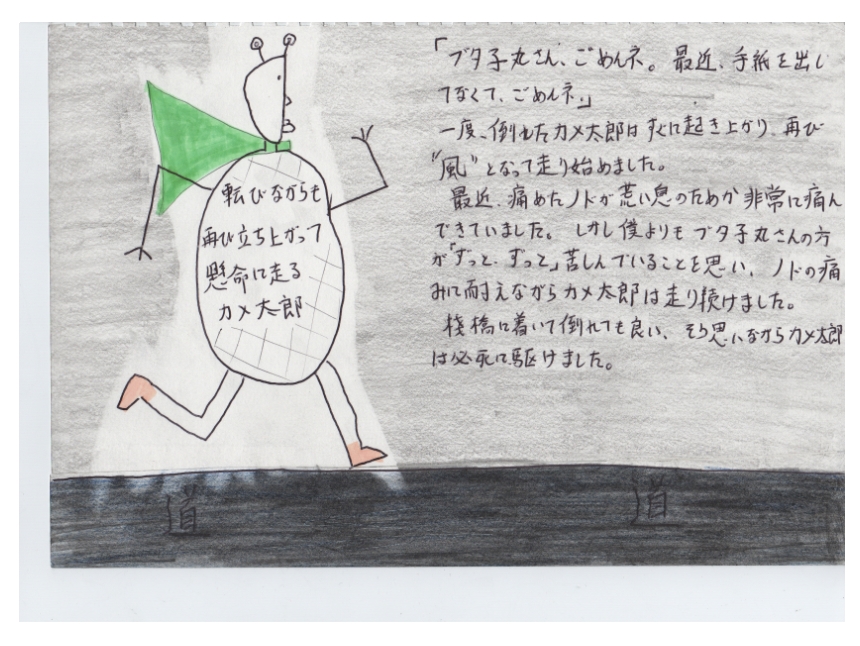 「ブタ子丸さん、ごめんネ。最近、手紙を出し
てなくて、ごめんネ。」
一度、倒れたカメ太郎はすぐに起き上がり、再び
"風"となって走り始めました。
最近、痛めたノドが荒い息のためか非常に痛ん
できていました。しかし僕よりもブタ子丸さんの方
が「ずっと、ずっと」苦しんでいることを思い、ノドの痛
みに耐えながらカメ太郎は走り続けました。
桟橋に着いて倒れても良い、そう思いながらカメ太郎
は必死に駆けました。
転びながらも
再び立ち上がって
懸命に走る
カメ太郎
道
道